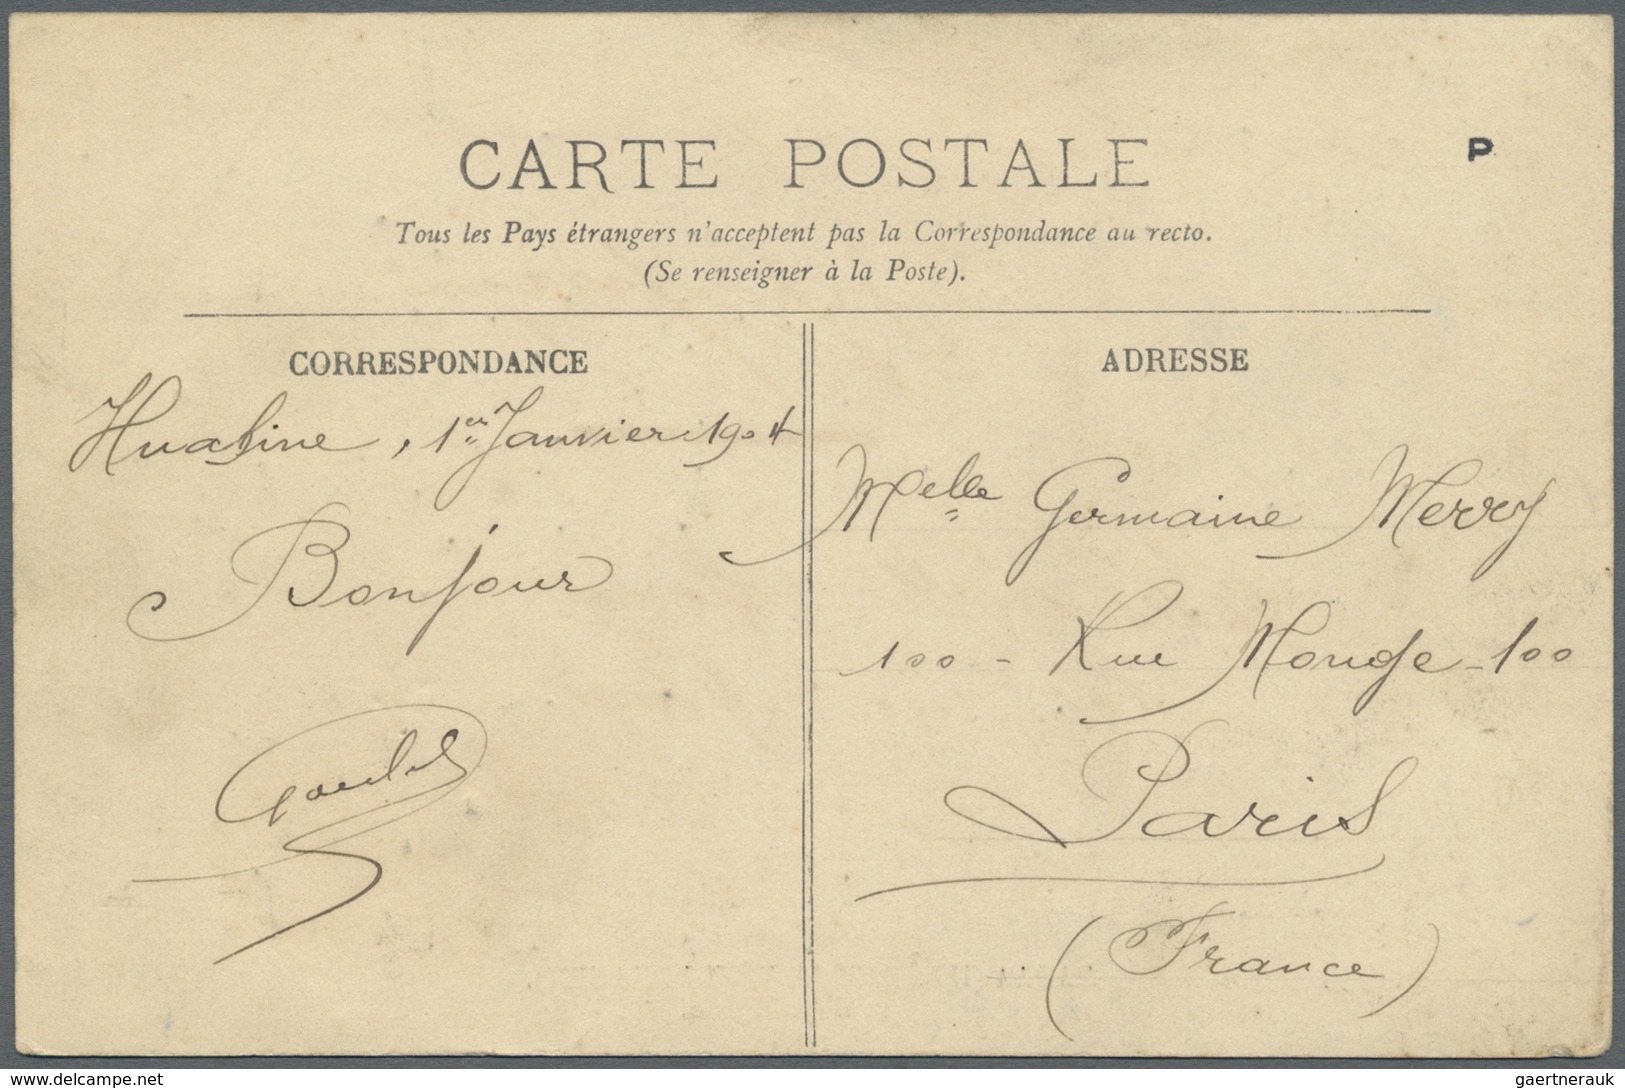 CARTE POSTALE
P
Tous les Pays étrangers n'acceptent pas la Correspondance au recto.
(Se renseigner à la Poste).
CORRESPONDANCE
, 1er Janvier 1904
Bonjour
ADRESSE
Melle Germaine Merry
100 - Rue Monge - 100
Paris
(France)
www.delcampe.net
gaertnerauk